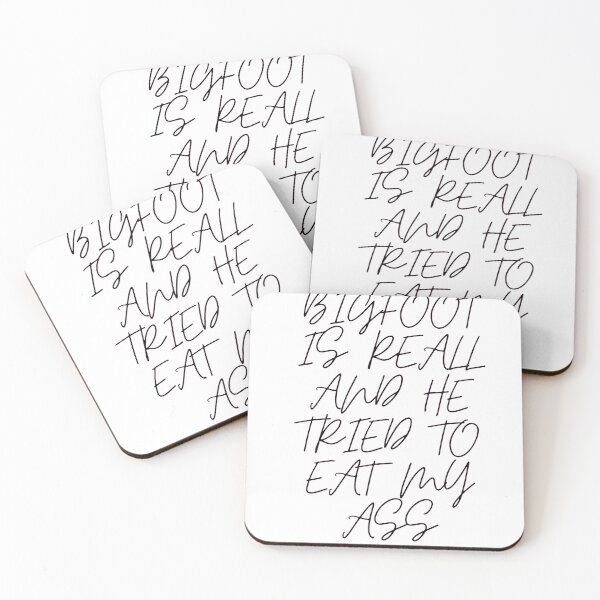 BIGFOOT
IS REALL
AND HE
TO
BIGFOOT
IS REALL
AND HE
TRIED TO
EAT MY
BIGFOOT
IS REALL
AND HE
TRIED TO
EAT
BIGFOOT
IS REALL
AND HE
TRIED TO
EAT MY
ASS